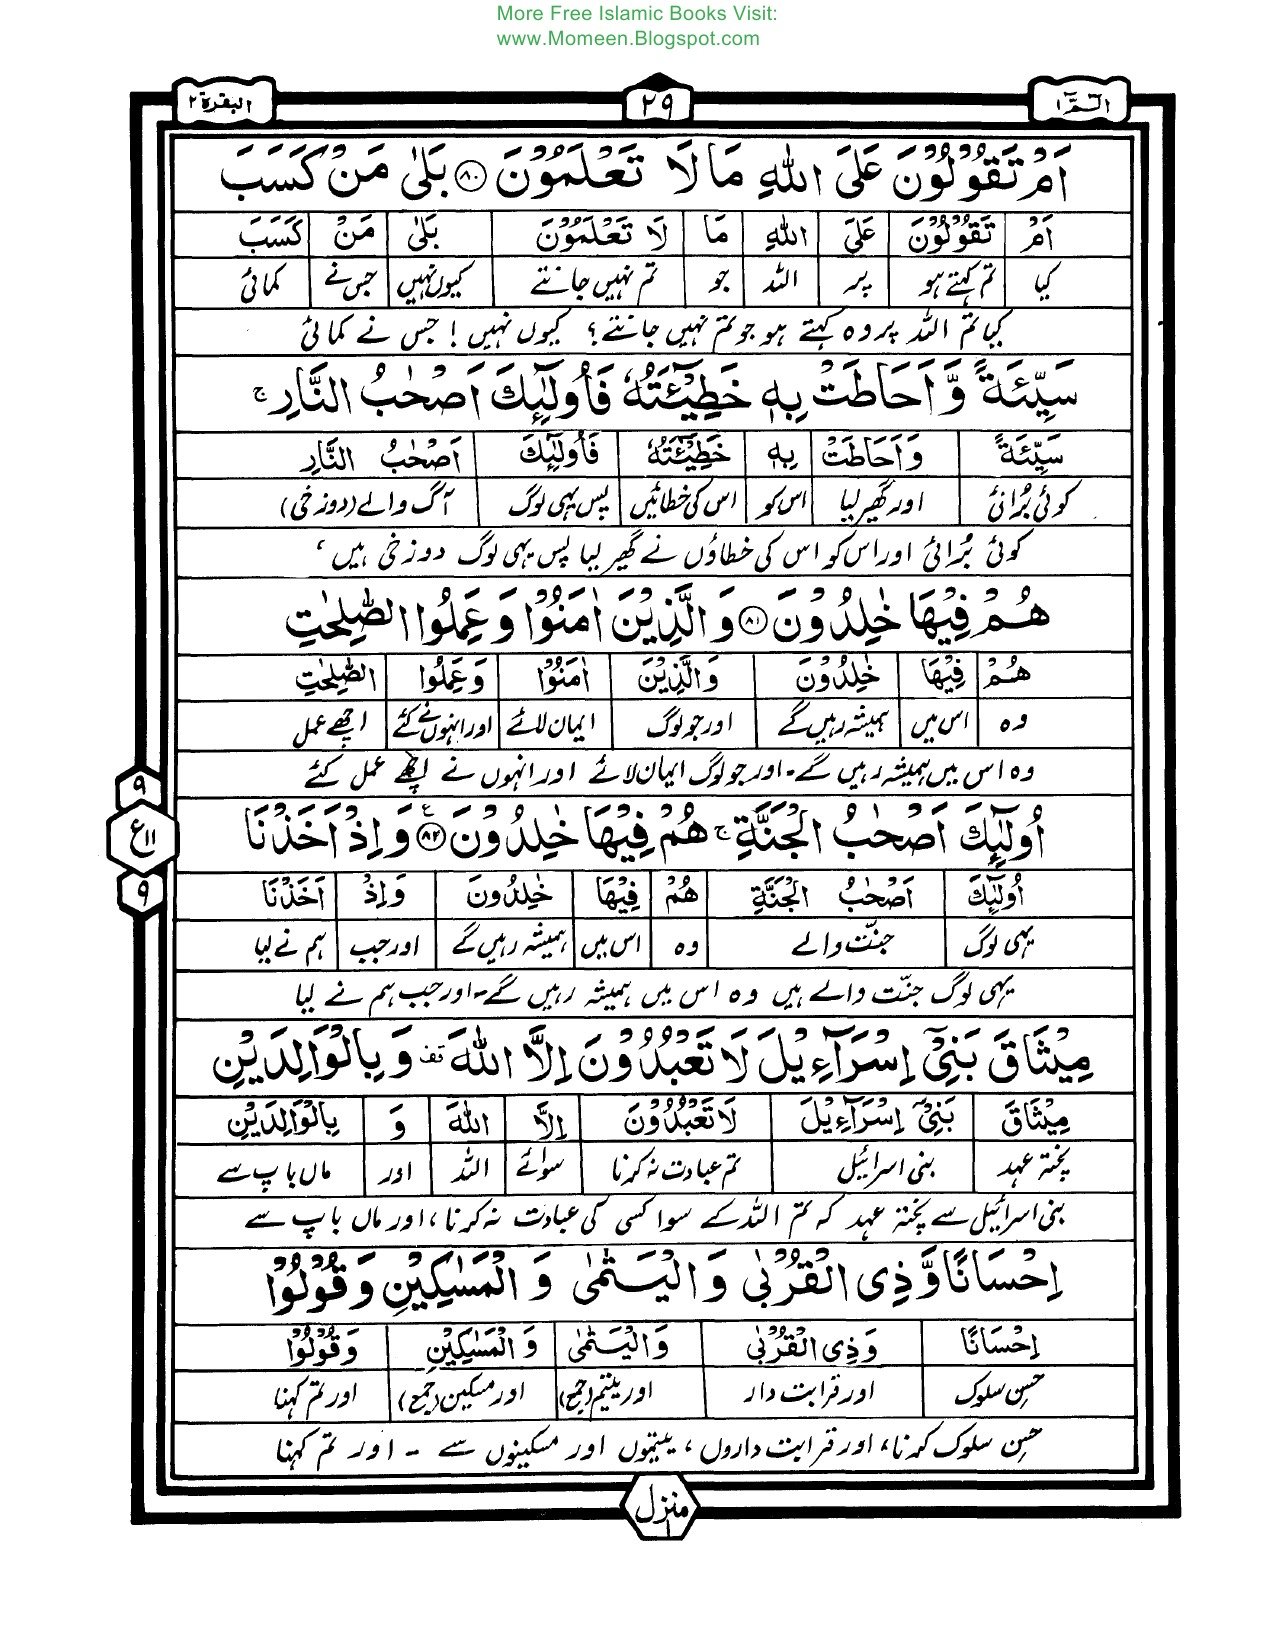 More Free Islamic Books Visit:
www.Momeen.Blogspot.com
الٓمّٓ ۱ ۲۹ البقرة ۲
اَمْ تَقُوْلُوْنَ عَلَى اللّٰهِ مَا لَا تَعْلَمُوْنَ ۸۰ بَلٰى مَنْ كَسَبَ
اَمْ تَقُوْلُوْنَ عَلَى اللّٰهِ مَا لَا تَعْلَمُوْنَ بَلٰى مَنْ كَسَبَ
کیا تم کہتے ہو پر اللہ جو تم نہیں جانتے کیوں نہیں جس نے کمائی
کیا تم اللہ پر وہ کہتے ہو جو تم نہیں جانتے؟ کیوں نہیں! جس نے کمائی
سَيِّئَةً وَّاَحَاطَتْ بِهٖ خَطِيْٓئَتُهٗ فَاُولٰٓئِكَ اَصْحٰبُ النَّارِ ج
سَيِّئَةً وَاَحَاطَتْ بِهٖ خَطِيْٓئَتُهٗ فَاُولٰٓئِكَ اَصْحٰبُ النَّارِ
کوئی بُرائی اور گھیر لیا اس کو اس کی خطائیں پس یہی لوگ آگ والے (دوزخی)
کوئی بُرائی اور اس کو اس کی خطاؤں نے گھیر لیا پس یہی لوگ دوزخی ہیں،
هُمْ فِيْهَا خٰلِدُوْنَ ۸۱ وَالَّذِيْنَ اٰمَنُوْا وَعَمِلُوا الصّٰلِحٰتِ
هُمْ فِيْهَا خٰلِدُوْنَ وَالَّذِيْنَ اٰمَنُوْا وَعَمِلُوا الصّٰلِحٰتِ
وہ اس میں ہمیشہ رہیں گے اور جو لوگ ایمان لائے اور انہوں نے کئے اچھے عمل
وہ اس میں ہمیشہ رہیں گے۔ اور جو لوگ ایمان لائے اور انہوں نے اچھے عمل کئے
۹
ع ۱۱
۹
اُولٰٓئِكَ اَصْحٰبُ الْجَنَّةِ ج هُمْ فِيْهَا خٰلِدُوْنَ ۸۲ ع وَاِذْ اَخَذْنَا
اُولٰٓئِكَ اَصْحٰبُ الْجَنَّةِ هُمْ فِيْهَا خٰلِدُوْنَ وَاِذْ اَخَذْنَا
یہی لوگ جنّت والے وہ اس میں ہمیشہ رہیں گے اور جب ہم نے لیا
یہی لوگ جنّت والے ہیں وہ اس میں ہمیشہ رہیں گے۔ اور جب ہم نے لیا
مِيْثَاقَ بَنِيْٓ اِسْرَآءِيْلَ لَا تَعْبُدُوْنَ اِلَّا اللّٰهَ قف وَبِالْوَالِدَيْنِ
مِيْثَاقَ بَنِيْٓ اِسْرَآءِيْلَ لَا تَعْبُدُوْنَ اِلَّا اللّٰهَ وَ بِالْوَالِدَيْنِ
پختہ عہد بنی اسرائیل تم عبادت نہ کرنا سوائے اللہ اور ماں باپ سے
بنی اسرائیل سے پختہ عہد کہ تم اللہ کے سوا کسی کی عبادت نہ کرنا، اور ماں باپ سے
اِحْسَانًا وَّذِي الْقُرْبٰى وَالْيَتٰمٰى وَالْمَسٰكِيْنِ وَقُوْلُوْا
اِحْسَانًا وَذِي الْقُرْبٰى وَالْيَتٰمٰى وَالْمَسٰكِيْنِ وَقُوْلُوْا
حسنِ سلوک اور قرابت دار اور یتیم (جمع) اور مسکین (جمع) اور تم کہنا
حسنِ سلوک کرنا، اور قرابت داروں، یتیموں اور مسکینوں سے ۔ اور تم کہنا
منزل ۱